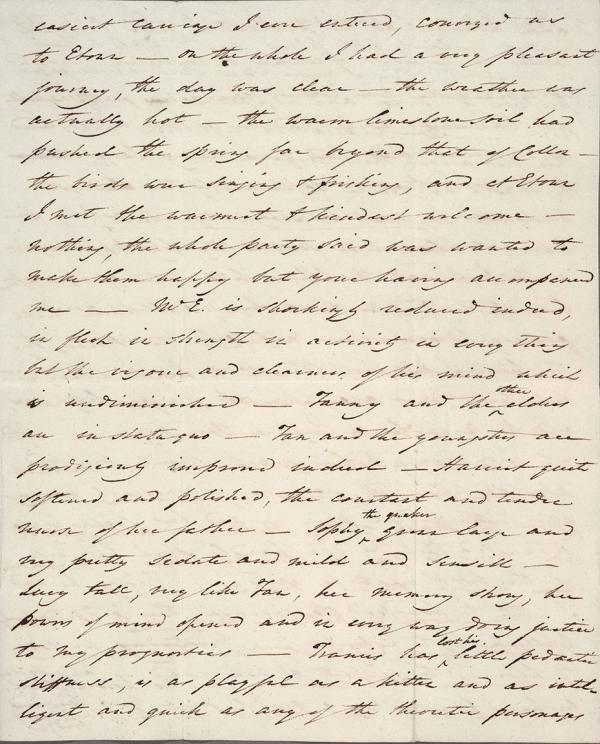 easiest carriage I ever entered, conveyed us
to Eton — on the whole I had a very pleasant
journey, the day was clear — the weather was
actually hot — the warm limestone soil had
pushed the spring far beyond that of Collon —
the birds were singing & frisking, and at Eton
I met the warmest & kindest welcome —
nothing, the whole party said was wanted to
make them happy but your having accompanied
me — Mr E. is shockingly reduced indeed,
in flesh in strength in activity in every thing
but the vigour and clearness of his mind which
is undiminished — Fanny and the other elders
are in statu quo — Fan and the youngsters are
prodigiously improved indeed — Harriet quite
softened and polished, the constant and tender
nurse of her father — Sophy the quaker grown large and
very pretty sedate and mild and sensible —
Lucy tall, very like Fan, her memory strong, her
powers of mind opened and in every way doing justice
to my prognostics — Francis has lost his little pedantic
stiffness, is as playful as a kitten and as intel-
ligent and quick as any of the theoretic personages